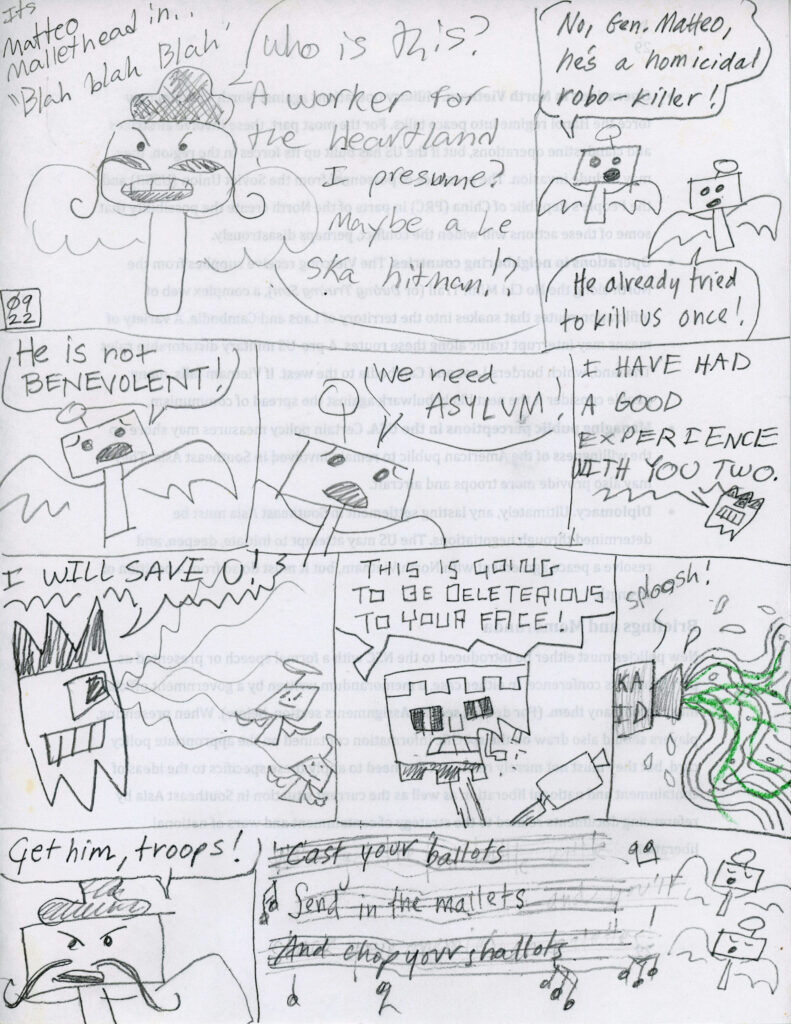 Its
Matteo
Mallethead in..
"Blah blah Blah"
Who is this?
A worker for
the heartland
I presume?
Maybe a Le
Ska hitman,?
No, Gen. Matteo,
he's a homicidal
robo-killer!
He already tried
to kill us once!
09
22
He is not
BENEVOLENT!
We need
ASYLUM!
I HAVE HAD
A GOOD
EXPERIENCE
WITH YOU TWO.
I WILL SAVE U!
THIS IS GOING
TO BE DELETERIOUS
TO YOUR FACE!
sploosh!
Get him, troops!
Cast your ballots
Send in the mallets
And chop your shallots